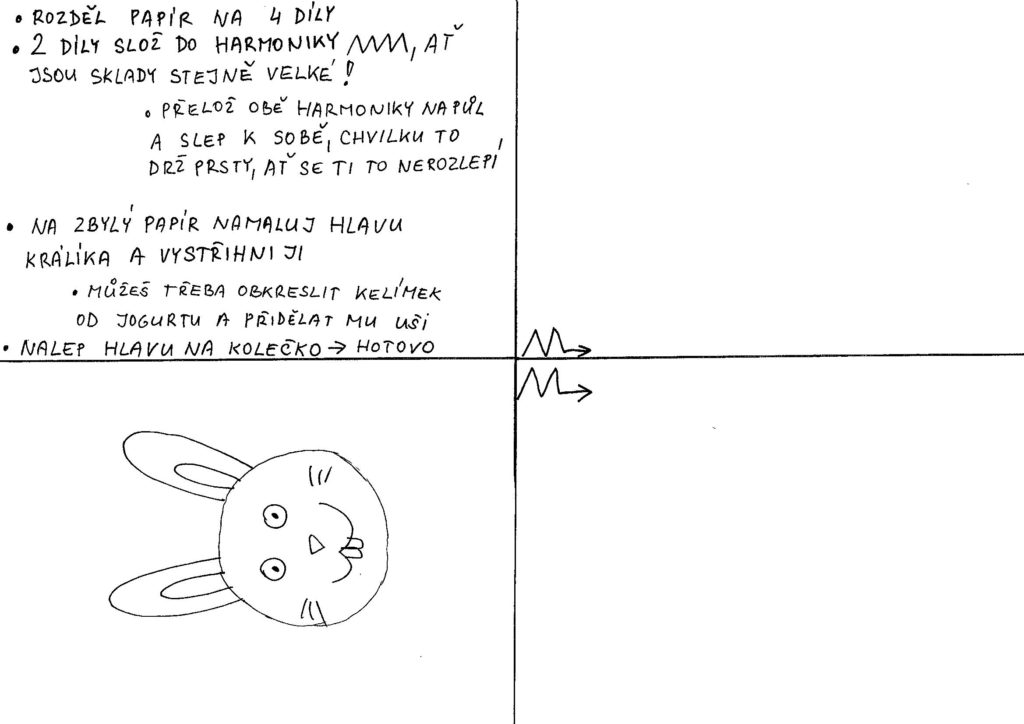 • ROZDĚL PAPÍR NA 4 DÍLY
• 2 DÍLY SLOŽ DO HARMONIKY, AŤ
JSOU SKLADY STEJNĚ VELKÉ!
• PŘELOŽ OBĚ HARMONIKY NAPŮL
A SLEP K SOBĚ, CHVILKU TO
DRŽ PRSTY, AŤ SE TI TO NEROZLEPÍ
• NA ZBYLÝ PAPÍR NAMALUJ HLAVU
KRÁLÍKA A VYSTŘIHNI JI
• MŮŽEŠ TŘEBA OBKRESLIT KELÍMEK
OD JOGURTU A PŘIDĚLAT MU UŠI
• NALEP HLAVU NA KOLEČKO → HOTOVO